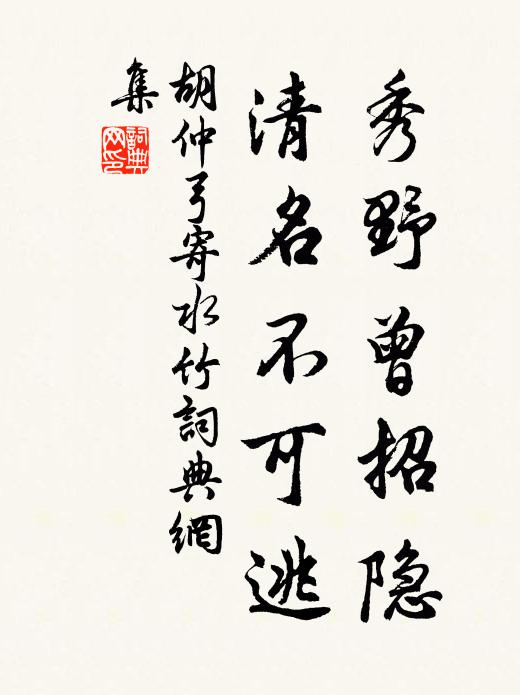 秀野曾招隐
清名不可逃
胡仲弓寄水竹詞典網
集
詞典
网印